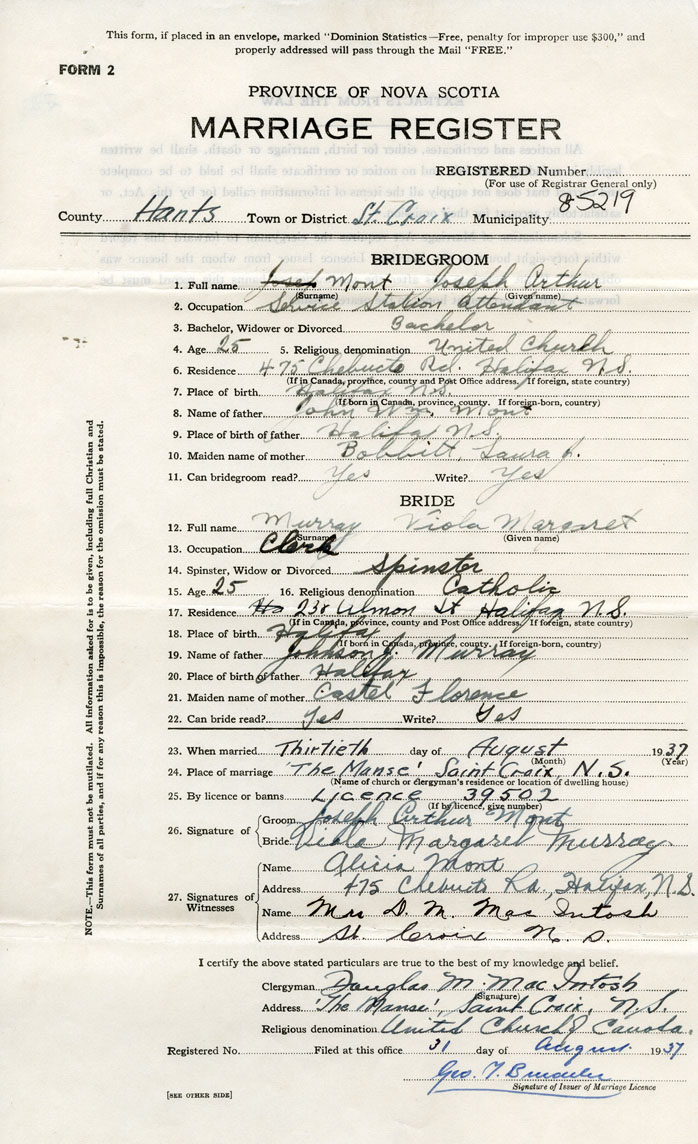 This form, if placed in an envelope, marked "Dominion Statistics—Free, penalty for improper use $300," and
properly addressed will pass through the Mail "FREE."
FORM 2
PROVINCE OF NOVA SCOTIA
MARRIAGE REGISTER
REGISTERED Number
(For use of Registrar General only)
85219
County Hants Town or District St. Croix Municipality
BRIDEGROOM
1. Full name Mont Joseph Arthur
(Surname) (Given name)
2. Occupation Service Station Attendant
3. Bachelor, Widower or Divorced Bachelor
4. Age 25 5. Religious denomination United Church
6. Residence 475 Chebucto Rd. Halifax N.S.
(If in Canada, province, county and Post Office address. If foreign, state country)
7. Place of birth Halifax N.S.
(If born in Canada, province, county. If foreign-born, country)
8. Name of father John Wm. Mont
9. Place of birth of father Halifax N.S.
10. Maiden name of mother Bobbitt, Laura J.
11. Can bridegroom read? Yes Write? Yes
BRIDE
12. Full name Murray Viola Margaret
(Surname) (Given name)
13. Occupation Clerk
14. Spinster, Widow or Divorced Spinster
15. Age 25 16. Religious denomination Catholic
17. Residence 238 Almon St Halifax N.S.
(If in Canada, province, county and Post Office address. If foreign, state country)
18. Place of birth Halifax
(If born in Canada, province, county. If foreign-born, country)
19. Name of father Johnson J. Murray
20. Place of birth of father Halifax
21. Maiden name of mother Castel Florence
22. Can bride read? Yes Write? Yes
23. When married Thirtieth day of August 1937
(Month) (Year)
24. Place of marriage 'The Manse' Saint Croix, N.S.
(Name of church or clergyman's residence or location of dwelling house)
25. By licence or banns Licence 39502
(If by licence, give number)
26. Signature of Groom Joseph Arthur Mont
Bride Viola Margaret Murray
27. Signatures of Witnesses Name Alicia Mont
Address 475 Chebucto Rd., Halifax, N.S.
Name Mrs D. M. MacIntosh
Address St. Croix N. S.
I certify the above stated particulars are true to the best of my knowledge and belief.
Clergyman Douglas M. MacIntosh
(Signature)
Address 'The Manse', Saint Croix, N.S.
Religious denomination United Church of Canada.
Registered No. Filed at this office 31 day of August 1937
Geo. T.
Signature of Issuer of Marriage Licence
[SEE OTHER SIDE]
NOTE.—This form must not be mutilated. All information asked for is to be given, including full Christian and
Surnames of all parties, and if for any reason this is impossible, the reason for the omission must be stated.